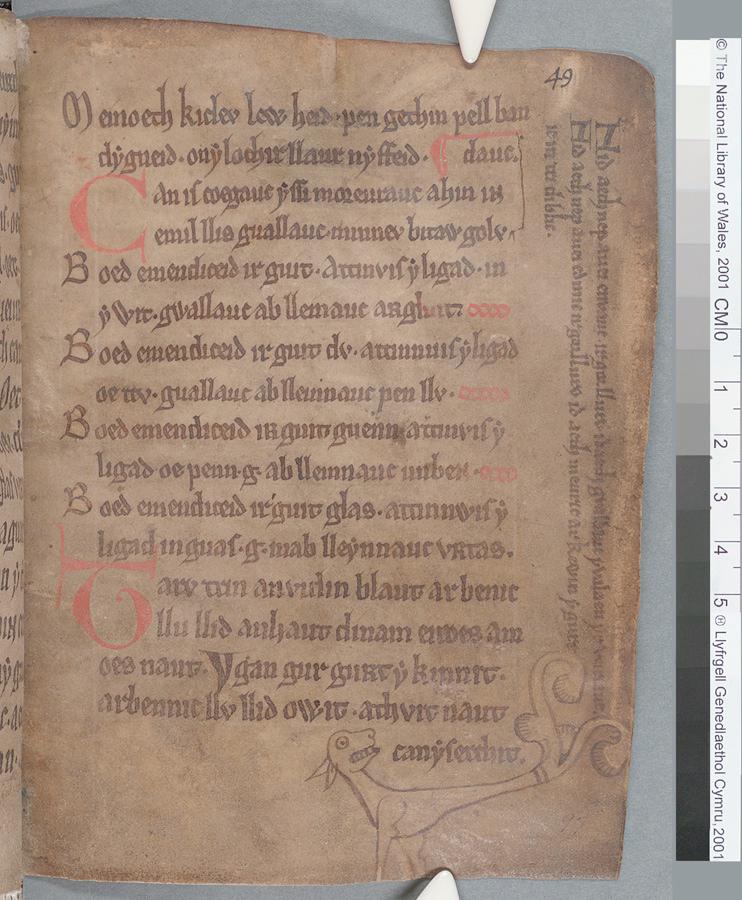 49
Meinoeth kiclev lew heid. pen gethin pell ban
clygueid. ony lochir llaur nyffeid. ¶ dauc.
Can is coegauc yssi moreurauc ahin in
emil llis guallauc. minnev bitaw golv
Boed emendiceid ir guit. Attinvis y ligad. in
y wit. gwallauc ab lleinauc arglwit.
Boed emendiceid ir guit dv. attinnuis y ligad
oe tv. guallauc ab lleinnauc pen llv.
Boed emendiceid ir guit guenn. attinvis y
ligad oe penn. g. ab lleinnauc unben.
Boed emendiceid ir guit glas. attinnwis y
ligad in guas. g. mab lleynnauc vrtas.
Tarv trin anvidin blaut arbenic
llu llid anhaut dinam eiroes am
oes naut. Y gan gur gurt y kinnit.
arbennic llv llid owit. athvit naut
canyserchit.
Nid aeth nep
Nid aeth nep id aeth meuric
© The National Library of Wales, 2001 CM 0 1 2 3 4 5 Llyfrgell Genedlaethol Cymru, 2001